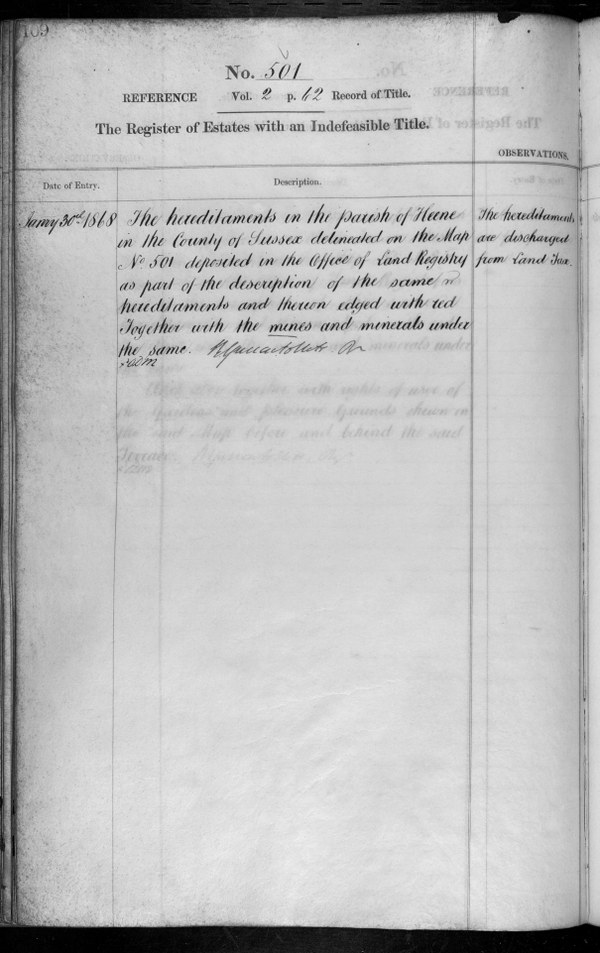 109
No. 501
REFERENCE Vol. 2 p. 62 Record of Title.
The Register of Estates with an Indefeasible Title.
OBSERVATIONS.
Date of Entry.
Description.
Jan'y 30th 1868
The hereditaments in the parish of Heene
in the County of Sussex delineated on the Map
No 501 deposited in the Office of Land Registry
as part of the description of the same
hereditaments and thereon edged with red
Together with the mines and minerals under
the same.
The hereditaments
are discharged
from Land Tax.